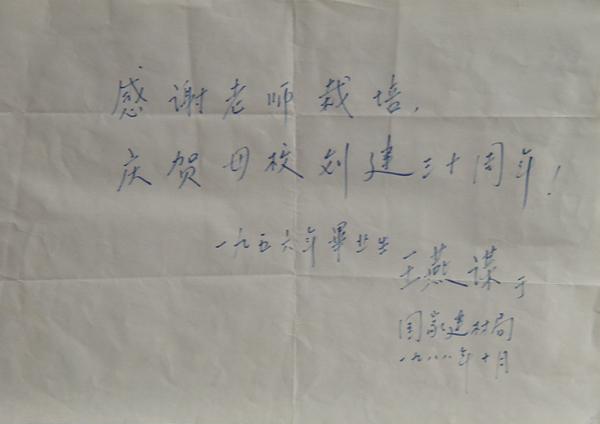 感谢老师栽培,
庆贺母校创建三十周年!
一九五六年畢业生
王燕谋于
国家建材局
一九八八年十月